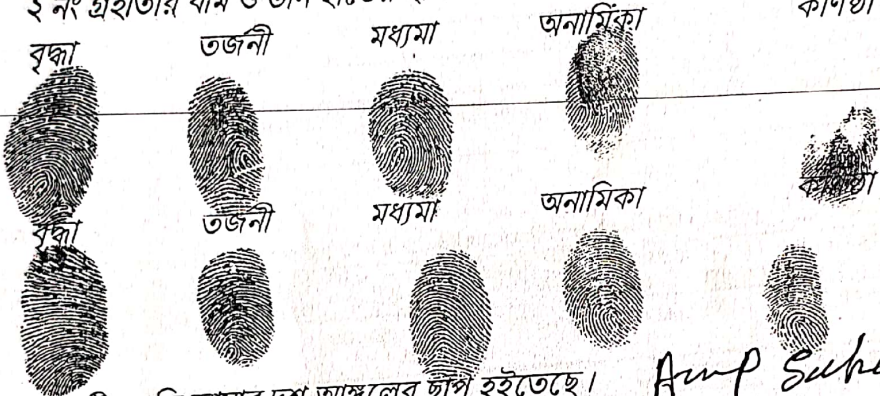 ২ নং গ্রহীতার বাম ও ডান হাতের
বৃদ্ধা তর্জনী মধ্যমা অনামিকা কনিষ্ঠা
বৃদ্ধা তর্জনী মধ্যমা অনামিকা কনিষ্ঠা
আঙ্গুলের ছাপ হইতেছে।